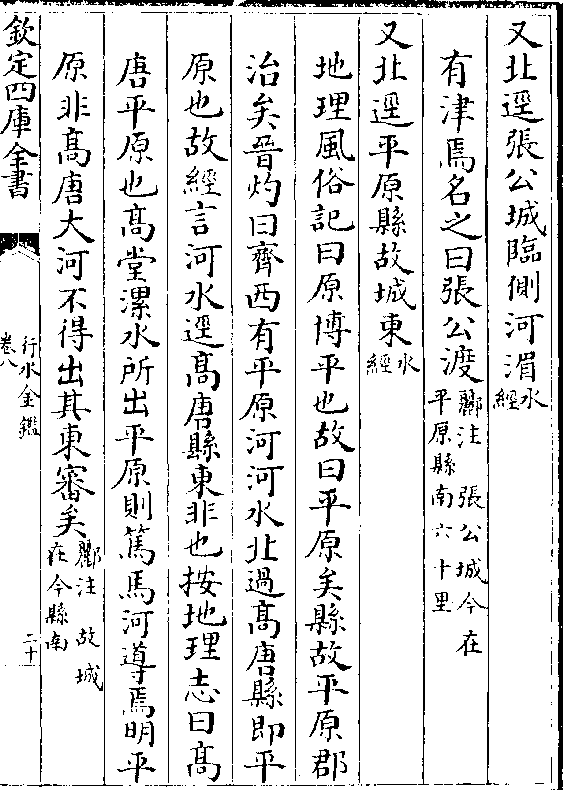 又北逕張公城臨側河湄水經
有津焉名之曰張公渡酈注 張公城今在平原縣南六十里
又北逕平原縣故城東水經
地理風俗記曰原博平也故曰平原矣縣故平原郡
治矣晉灼曰齊西有平原河河水北過髙唐縣即平
原也故經言河水逕髙唐縣東非也按地理志曰髙
唐平原也髙堂漯水所出平原則篤馬河導焉明平
原非髙唐大河不得出其東審矣酈注 故城在今縣南
欽定四庫全書
行水金鑑
卷八
二十